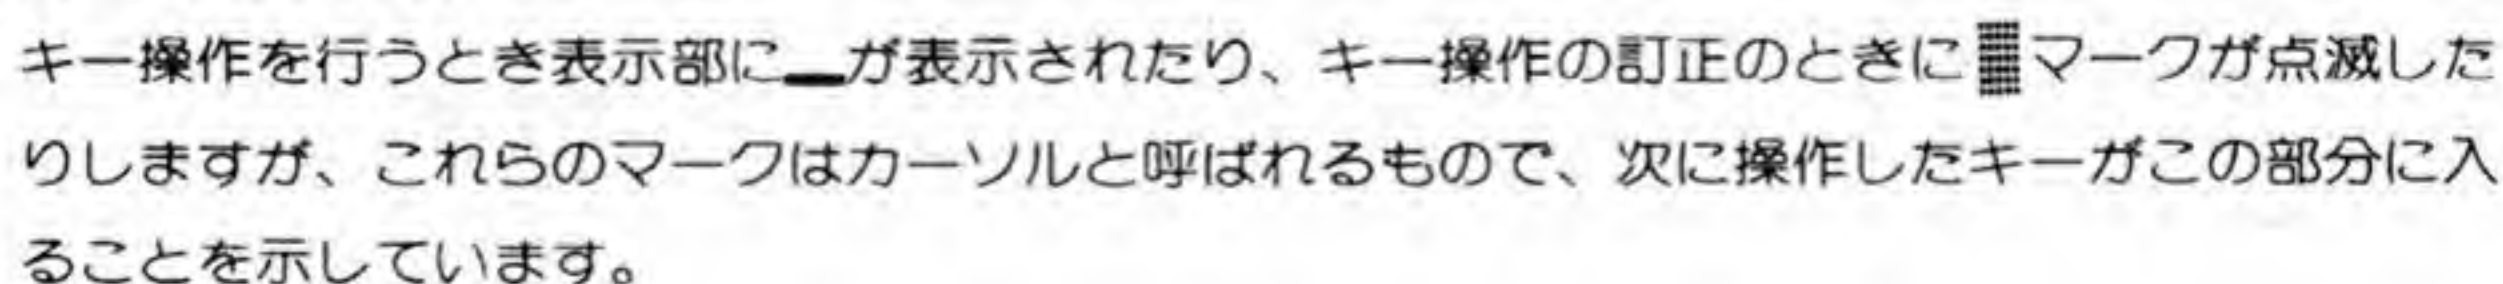 キー操作を行うとき表示部に_が表示されたり、キー操作の訂正のときに▒マークが点滅した
りしますが、これらのマークはカーソルと呼ばれるもので、次に操作したキーがこの部分に入
ることを示しています。